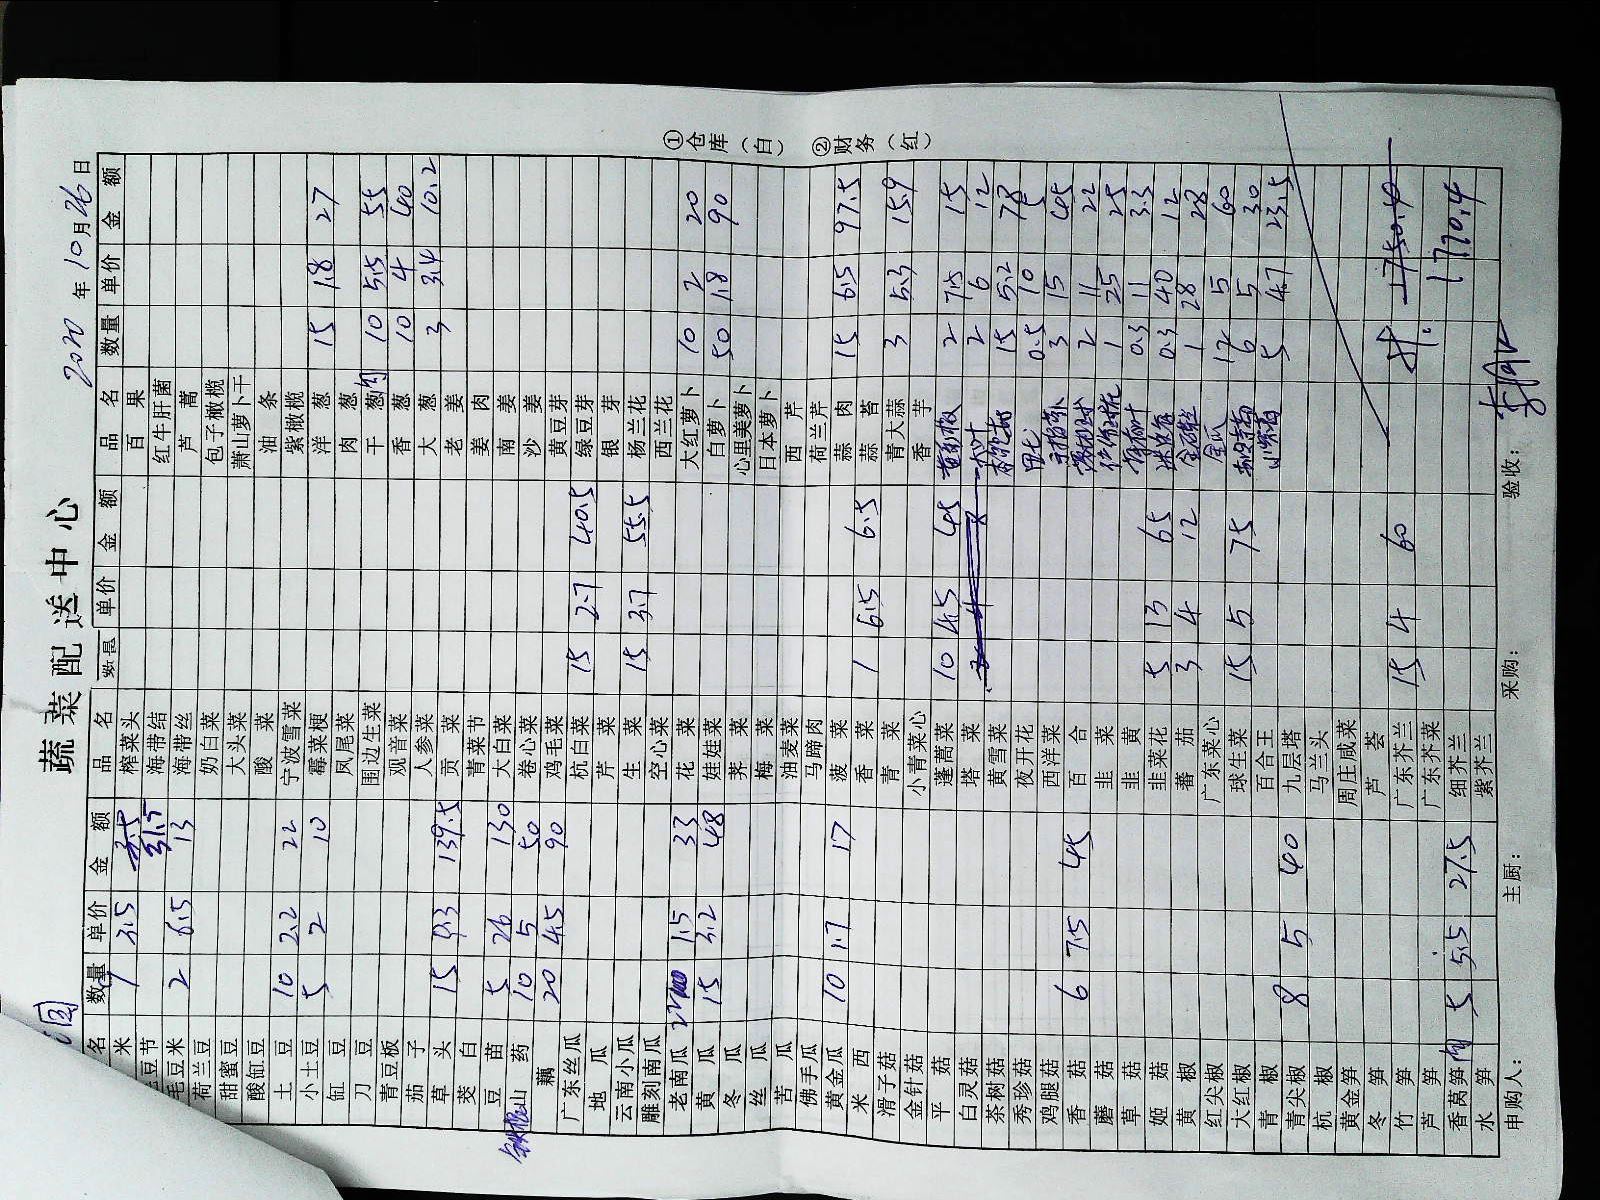 蔬菜配送中心
2020 年 10 月 26 日
名 数量 单价 金额 品名 数量 单价 金额 品名 数量 单价 金额
米 3.5 榨菜头 百果
豆节 31.5 海带结 红牛肝菌
毛豆米 2 6.5 13 海带丝 芦蒿
荷兰豆 奶白菜 包子橄榄
甜蜜豆 大头菜 萧山萝卜干
酸缸豆 酸菜 油条
土豆 10 2.2 22 宁波雪菜 紫橄榄
小土豆 5 2 10 霉菜梗 洋葱 15 1.8 27
缸豆 凤尾菜 肉葱
刀豆 围边生菜 干葱 10 5.5 55
青豆板 观音菜 香葱 10 4 40
茄子 人参菜 大葱 3 3.4 10.2
草头 15 9.3 139.5 贡菜 老姜
茭白 青菜节 姜肉
豆苗 5 26 130 大白菜 南姜
山药 10 5 50 卷心菜 沙姜
藕 20 4.5 90 鸡毛菜 黄豆芽
广东丝瓜 杭白菜 15 2.7 40.5 绿豆芽
地瓜 芹菜 银芽
云南小瓜 生菜 15 3.7 55.5 杨兰花
雕刻南瓜 空心菜 西兰花
老南瓜 22 1.5 33 花菜 大红萝卜 10 2 20
黄瓜 15 3.2 48 娃娃菜 白萝卜 50 1.8 90
冬瓜 荠菜 心里美萝卜
丝瓜 梅菜 日本萝卜
苦瓜 油麦菜 西芹
佛手瓜 马蹄肉 荷兰芹
黄金瓜 10 1.7 17 菠菜 蒜肉 15 6.5 97.5
米西 香菜 1 6.5 6.5 蒜苔
滑子菇 青菜 青大蒜 3 5.3 15.9
金针菇 小青菜心 香芋
平菇 蓬蒿菜 10 4.5 45 2 7.5 15
白灵菇 塔菜 2 6 12
茶树菇 黄雪菜 15 5.2 78
秀珍菇 夜开花 0.5 10 5
鸡腿菇 西洋菜 3 15 45
香菇 6 7.5 45 百合 2 11 22
蘑菇 韭菜 1 25 25
草菇 韭黄 0.3 11 3.3
姬菇 韭菜花 5 13 65 0.3 40 12
黄椒 蕃茄 3 4 12 1 28 28
红尖椒 广东菜心 金瓜 12 5 60
大红椒 球生菜 15 5 75 6 5 30
青椒 百合王 5 4.7 23.5
青尖椒 8 5 40 九层塔
杭椒 马兰头
黄金笋 周庄咸菜
冬笋 芦荟
竹笋 广东芥兰 15 4 60 1750.40
芦笋 广东芥菜
香莴笋肉 5 5.5 27.5 细芥兰 1770.4
水笋 紫芥兰
申购人： 主厨： 采购： 验收：
①仓库（白） ②财务（红）